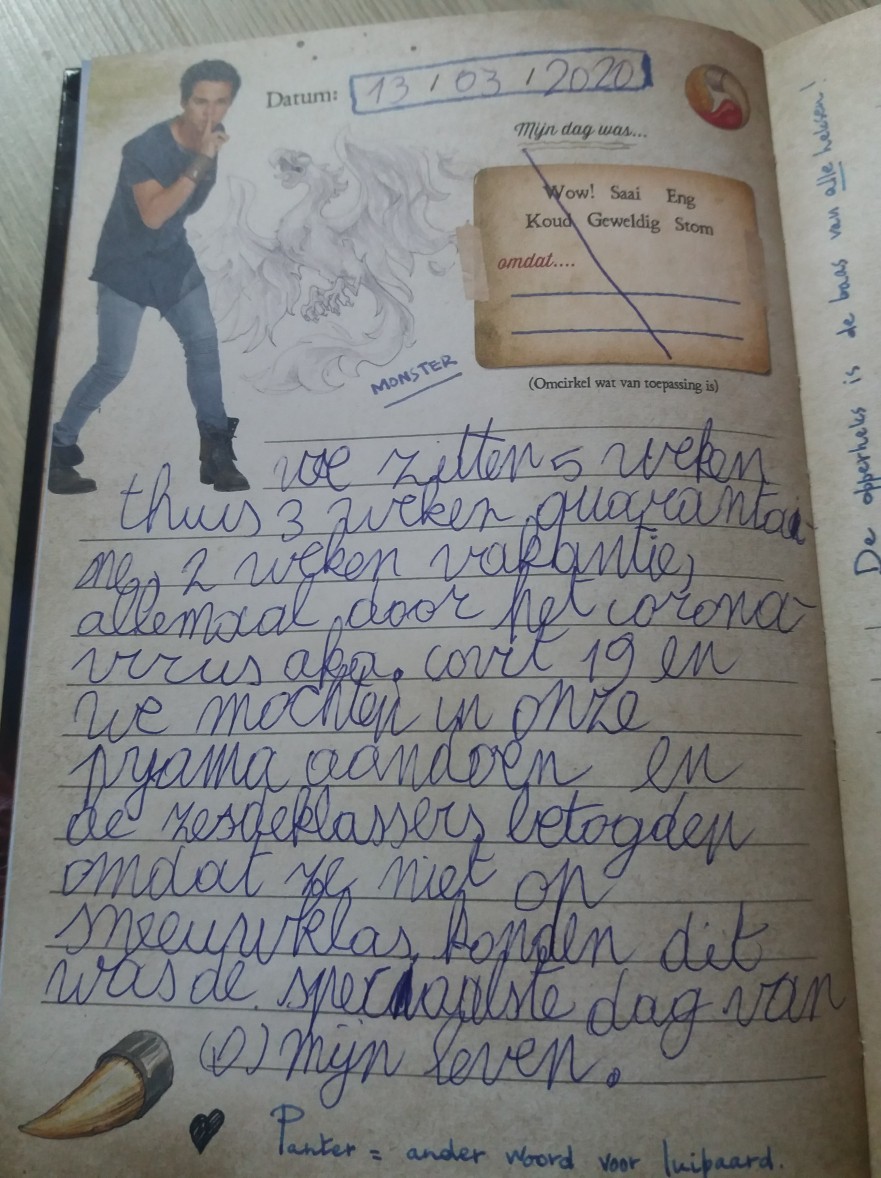 Datum: 13 / 03 / 2020
Mijn dag was...
Wow! Saai Eng
Koud Geweldig Stom
omdat....
(Omcirkel wat van toepassing is)
MONSTER
we zitten 5 weken
thuis 3 weken quarantai
ne, 2 weken vakantie,
allemaal door het corona
virus aka. covit 19 en
we mochten in onze
pyama aandoen en
de zesdeklassers betogden
omdat ze niet op
sneeuwklas konden dit
was de speciaalste dag van
mijn leven.
Panter = ander woord voor luipaard.
De opperheks is de baas van alle heksen!